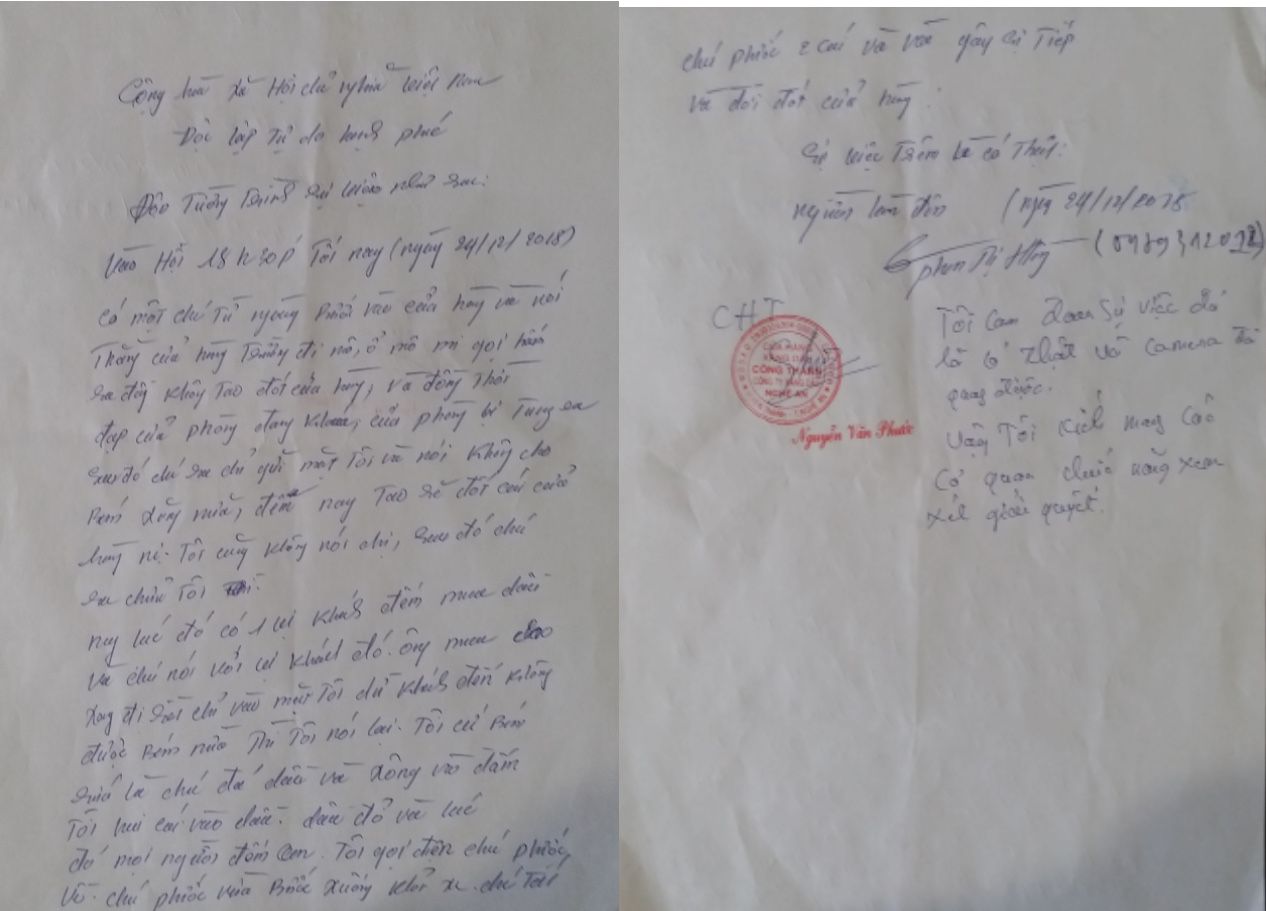 Cộng hòa Xã Hội chủ nghĩa Việt Nam
Độc lập Tự do hạnh phúc
Đơn Tường Trình sự việc như sau:
Vào Hồi 18h30p Tối nay (ngày 24/12/2018)
có một chú Từ ngoài vào cửa hàng và nói
Thằng cửa hàng Trưởng đi mô, ở mô mi gọi hắn
ra đây không Tao đốt cửa hàng, và đồng Thời
đạp cửa phòng đang khóa, cửa phòng bị Tung ra
sau đó chú ra chỉ mặt Tôi và nói không cho
Bán Xăng nữa, đêm nay Tao sẽ đốt cái cửa
hàng ni. Tôi cũng không nói chi, sau đó chú
ra chửi Tôi
ngay lúc đó có 1 vị khách đến mua dầu
và chú nói với vị khách đó. ông mua
xong đi rồi chỉ vào mặt Tôi khách đến không
được Bán nữa Thì Tôi nói lại. Tôi cứ Bán
là chú đá dầu và xông vào đấm
Tôi hai cái vào đầu. dầu đổ và lúc
đó mọi người đến can. Tôi gọi điện chú phước,
Và chú phước vừa Bước xuống khỏi xe chú Tát
chú phước 2 cái và vẫn gây sự Tiếp
và đòi đốt cửa hàng.
Sự việc Trên là có Thật.
người làm đơn (ngày 24/12/2018
phan Thị Hồng
CHT
CỬA HÀNG
XĂNG DẦU
CÔNG THÀNH
CÔNG TY XĂNG DẦU
NGHỆ AN
Nguyễn Văn Phước
Tôi Cam đoan Sự việc đó
là có thật và Camera đã
quay được.
Vậy Tôi kính mong Các
Cơ quan chức năng xem
xét giải quyết.